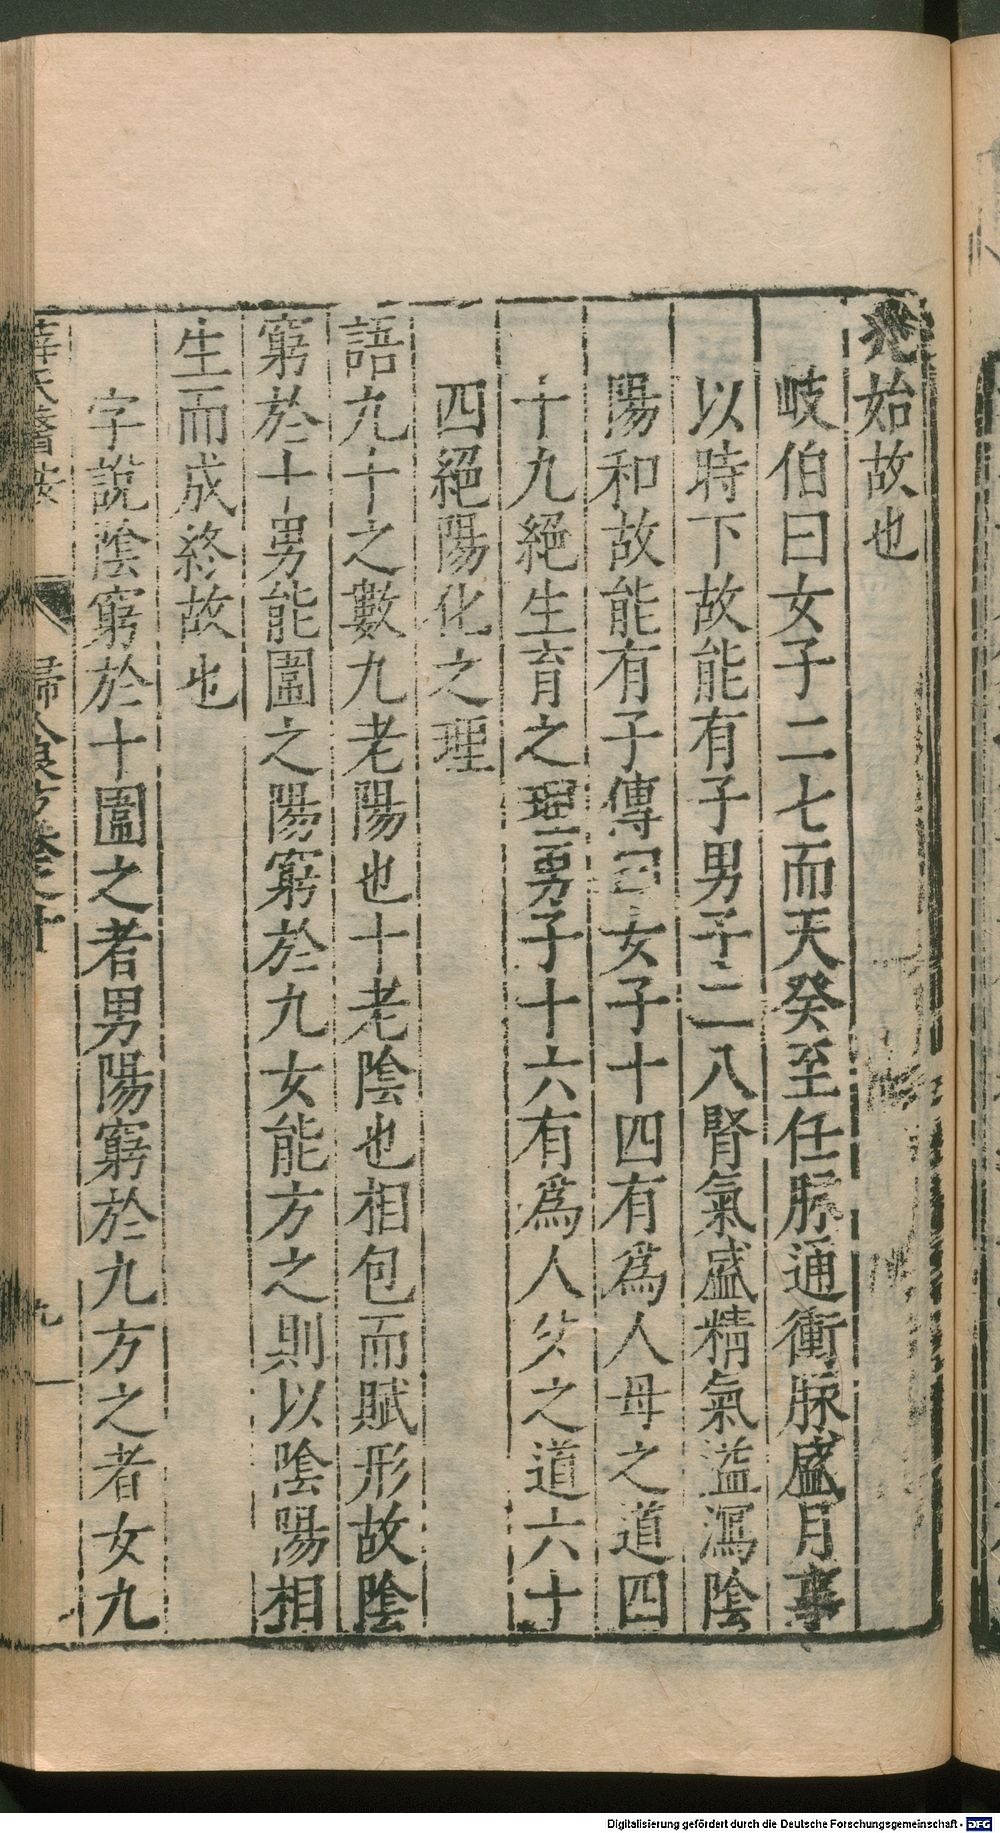 始故也
岐伯曰女子二七而天癸至任脉通衝脉盛月事
以時下故能有子男子二八腎氣盛精氣溢瀉陰
陽和故能有子傳曰女子十四有爲人母之道四
十九絕生育之理男子十六有爲人父之道六十
四絕陽化之理
語九十之數九老陽也十老陰也相包而賦形故陰
窮於十男能圍之陽窮於九女能方之則以陰陽相
生而成終故也
字說陰窮於十圍之者男陽窮於九方之者女九
薛氏醫按
歸
卷之十
九
Digitalisierung gefördert durch die Deutsche Forschungsgemeinschaft - DFG